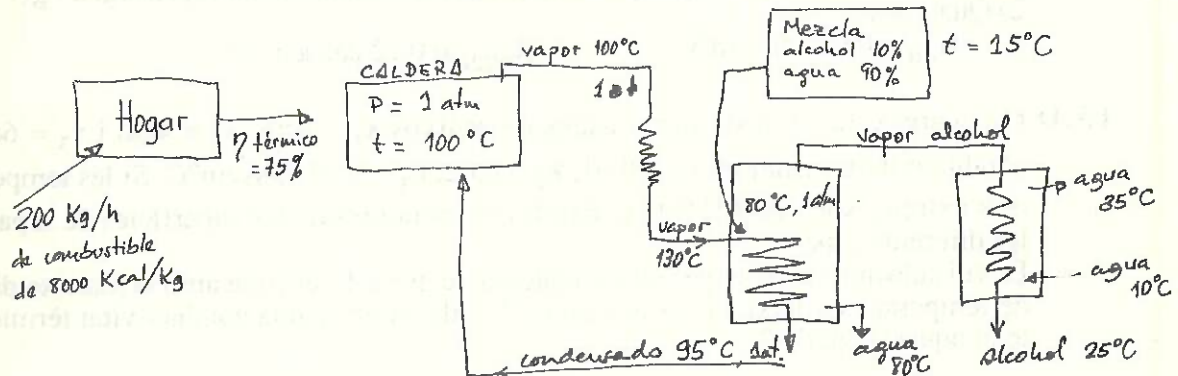 Hogar
200 Kg/h
de combustible
de 8000 Kcal/Kg
η térmico
=75%
CALDERA
P = 1 atm
t = 100 °C
vapor 100°C
Mezcla
alcohol 10%
agua 90%
t = 15°C
vapor
130°C
80°C, 1atm.
vapor alcohol
agua
35°C
agua
10°C
condensado 95°C, 1at.
agua
80°C
alcohol 25°C